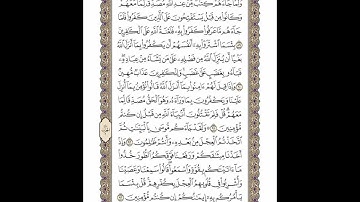 ولما جاءهم كتب من عند الله مصدق لما معهم
وكانوا من قبل يستفتحون على الذين كفروا فلما
جاءهم ما عرفوا كفروا به فلعنة الله على الكفرين
بئسما اشتروا به أنفسهم أن يكفروا بما أنزل الله
بغيا أن ينزل الله من فضله على من يشاء من عباده
فباءو بغضب على غضب وللكفرين عذاب مهين
وإذا قيل لهم ءامنوا بما أنزل الله قالوا نؤمن بما أنزل
علينا ويكفرون بما وراءه وهو الحق مصدقا لما
معهم قل فلم تقتلون أنبياء الله من قبل إن كنتم
مؤمنين ولقد جاءكم موسى بالبينت ثم
اتخذتم العجل من بعده وأنتم ظلمون وإذ
أخذنا ميثقكم ورفعنا فوقكم الطور خذوا
ما ءاتينكم بقوة واسمعوا قالوا سمعنا وعصينا
وأشربوا في قلوبهم العجل بكفرهم قل بئسما
يأمركم به إيمنكم إن كنتم مؤمنين